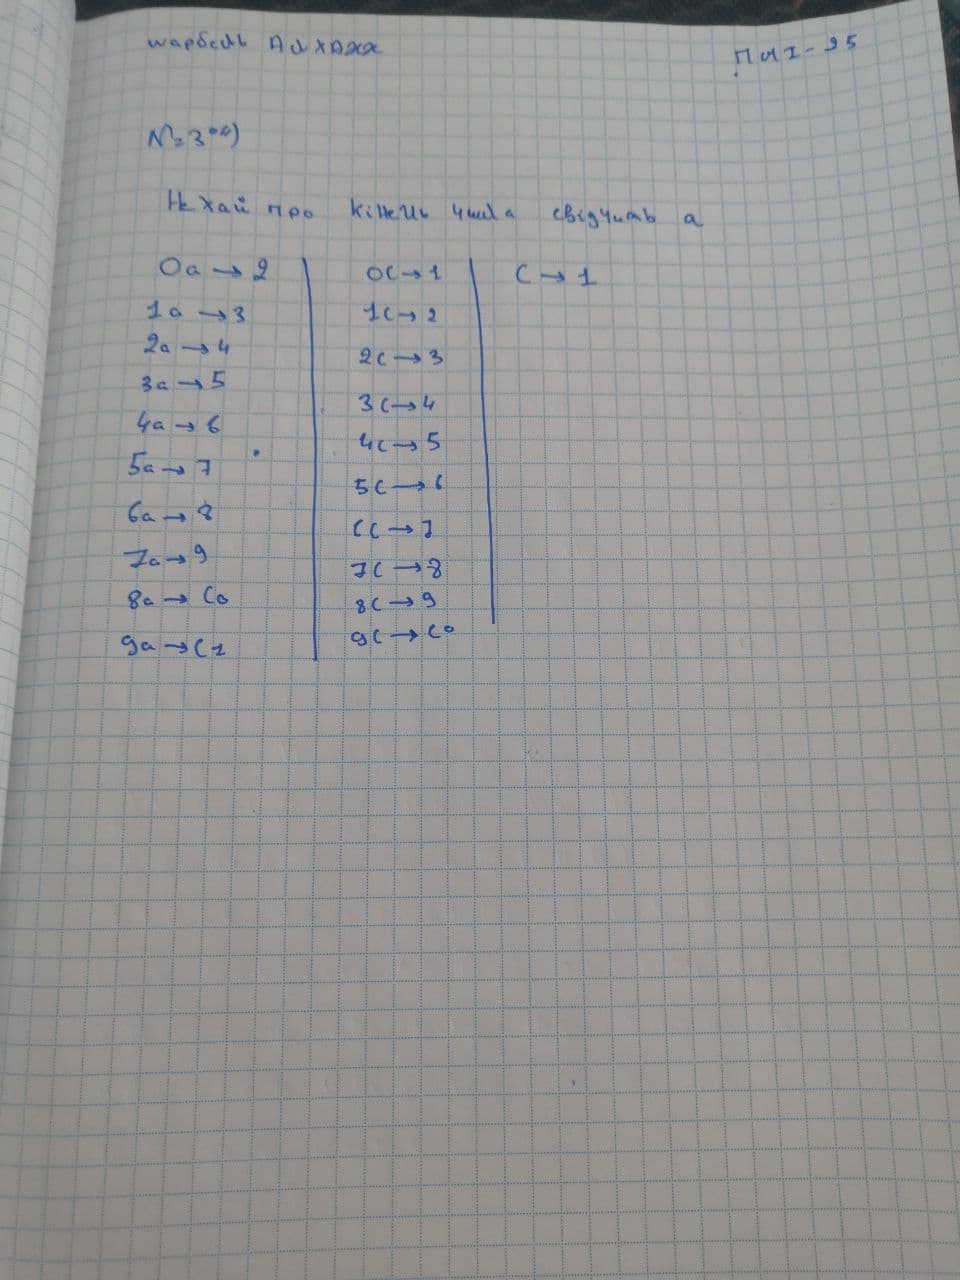 шарбель Алхажж
ПИІ-25
№3
Нехай про кінець числа свідчить a
0a → 2
1a → 3
2a → 4
3a → 5
4a → 6
5a → 7
6a → 8
7a → 9
8a → C0
9a → C1
0C → 1
1C → 2
2C → 3
3C → 4
4C → 5
5C → 6
6C → 7
7C → 8
8C → 9
9C → C0
C → 1